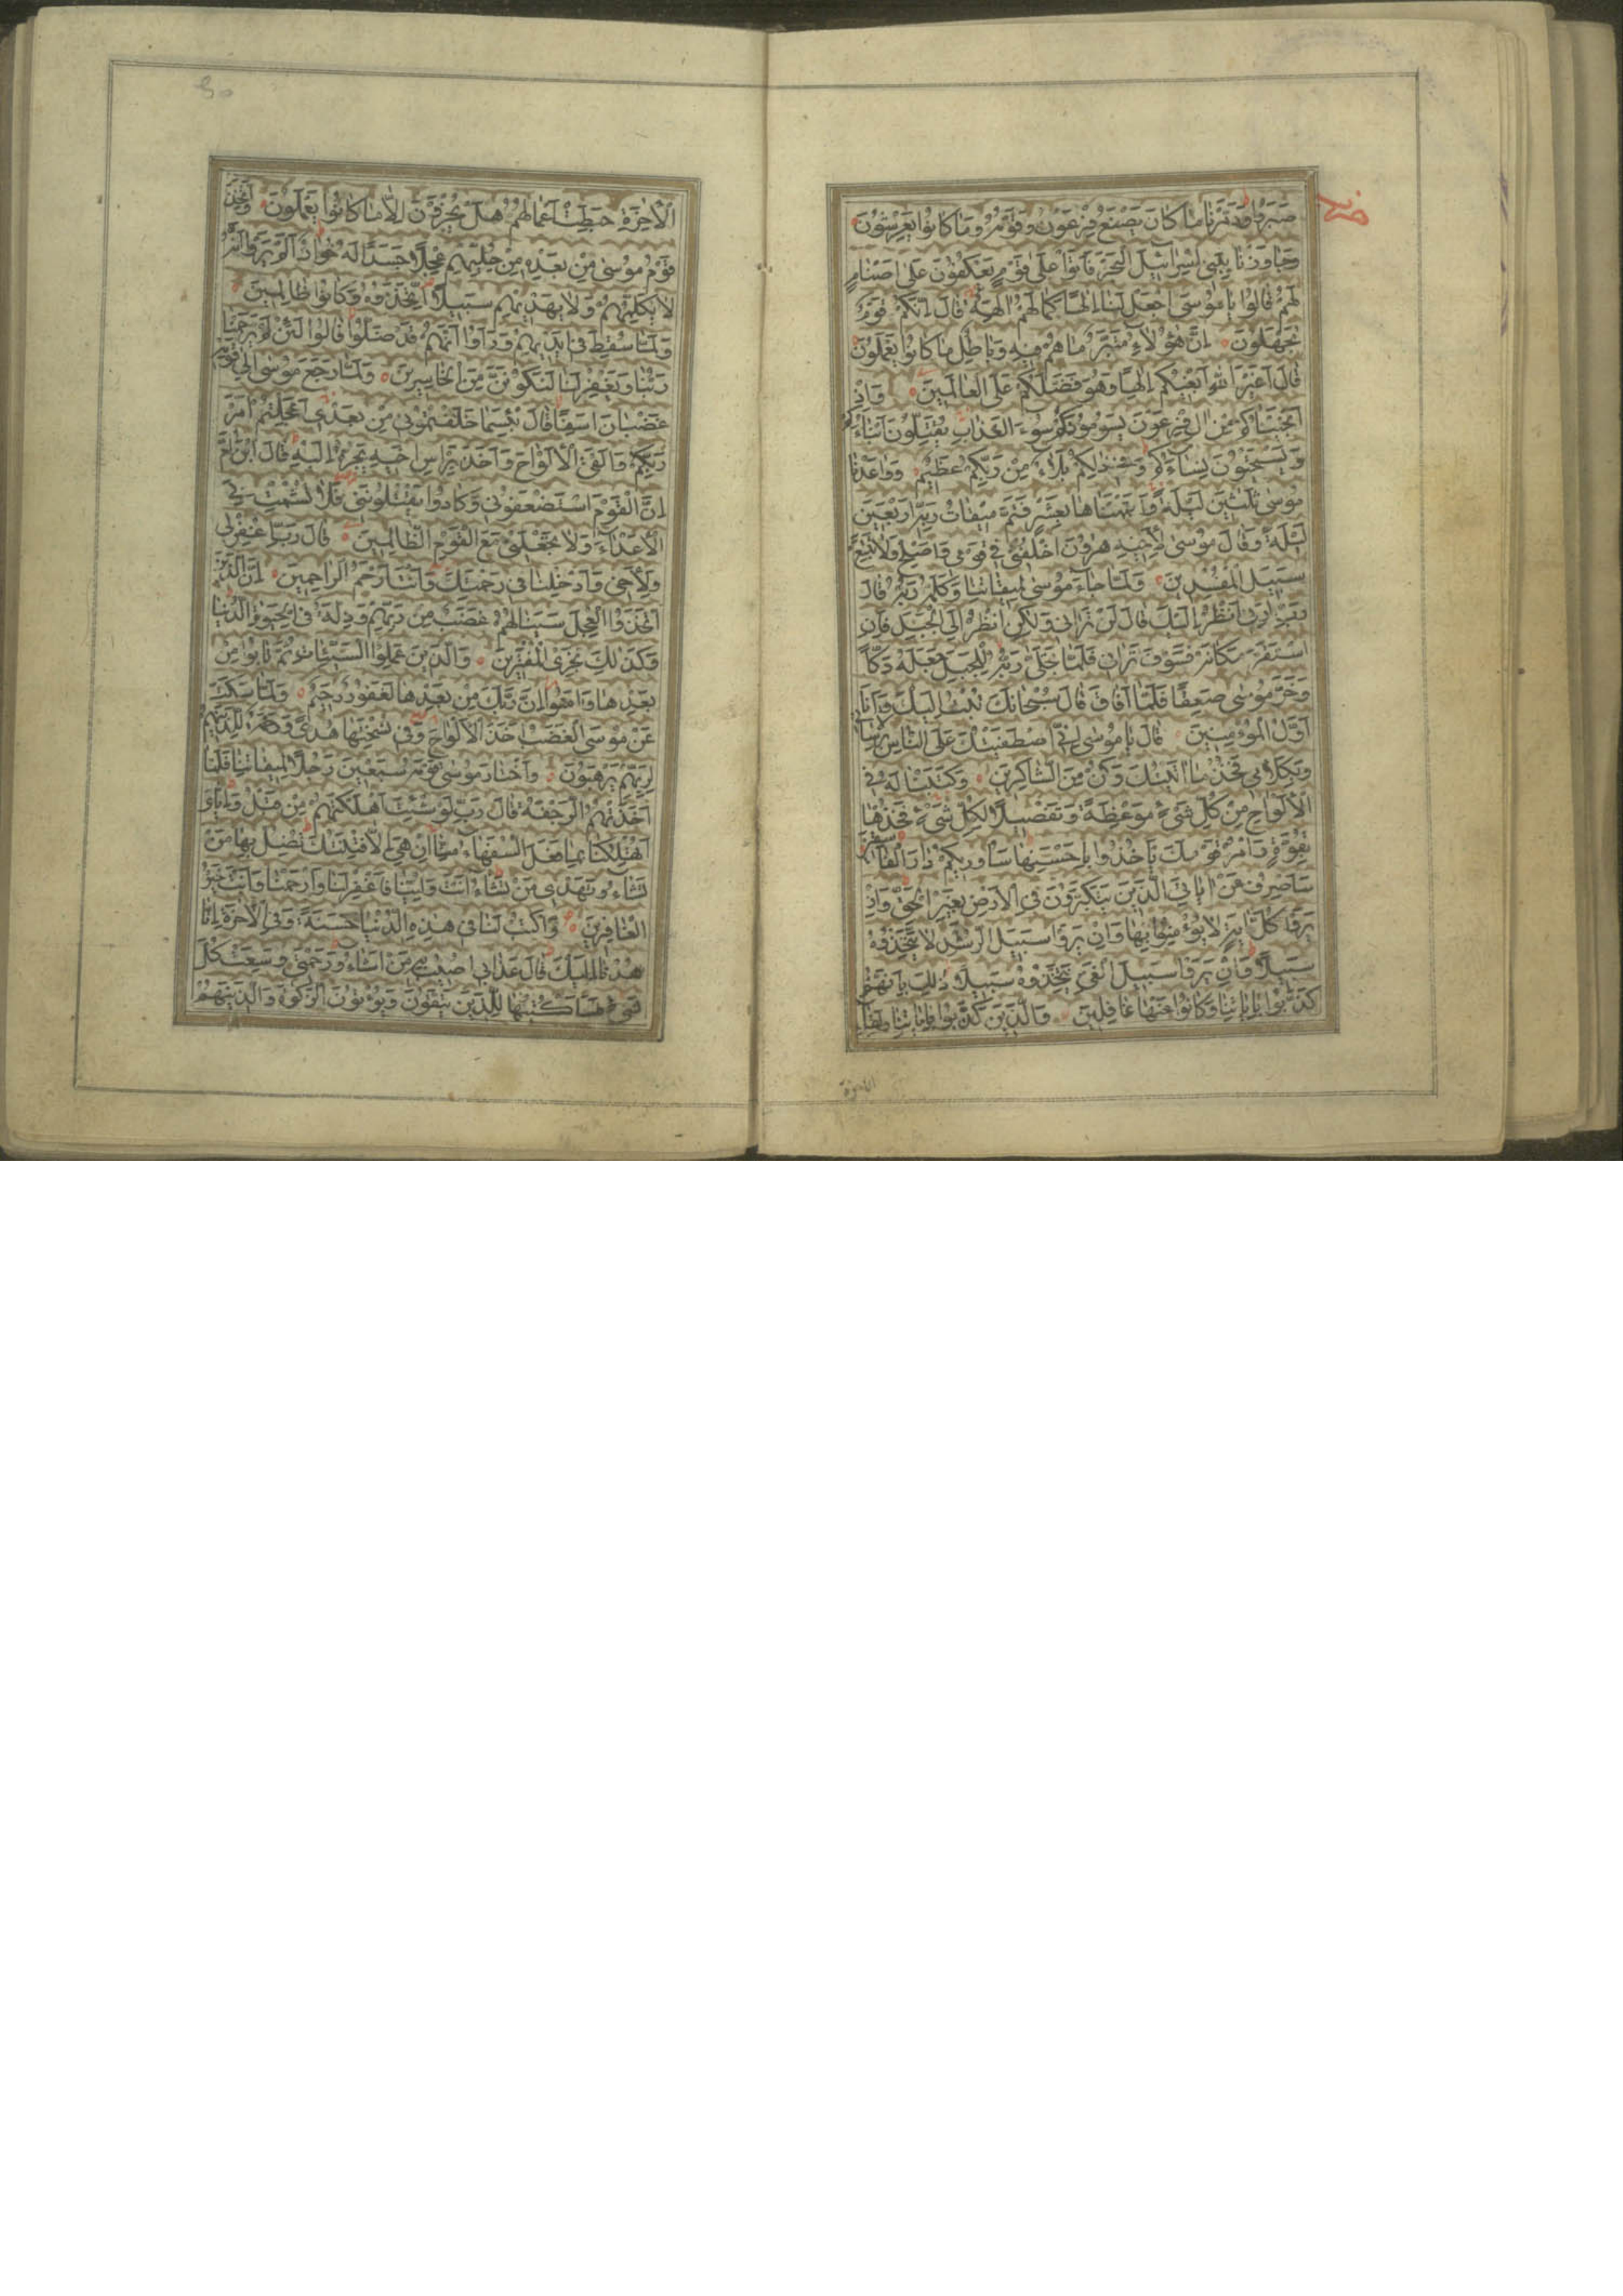 صَبَرُوا وَدَمَّرْنَا مَا كَانَ يَصْنَعُ فِرْعَوْنُ وَقَوْمُهُ وَمَا كَانُوا يَعْرِشُونَ
وَجَاوَزْنَا بِبَنِي إِسْرَائِيلَ الْبَحْرَ فَأَتَوْا عَلَى قَوْمٍ يَعْكُفُونَ عَلَى أَصْنَامٍ
لَهُمْ قَالُوا يَا مُوسَى اجْعَلْ لَنَا إِلَهًا كَمَا لَهُمْ آلِهَةٌ قَالَ إِنَّكُمْ قَوْمٌ
تَجْهَلُونَ إِنَّ هَؤُلَاءِ مُتَبَّرٌ مَا هُمْ فِيهِ وَبَاطِلٌ مَا كَانُوا يَعْمَلُونَ
قَالَ أَغَيْرَ اللَّهِ أَبْغِيكُمْ إِلَهًا وَهُوَ فَضَّلَكُمْ عَلَى الْعَالَمِينَ وَإِذْ
أَنْجَيْنَاكُمْ مِنْ آلِ فِرْعَوْنَ يَسُومُونَكُمْ سُوءَ الْعَذَابِ يُقَتِّلُونَ أَبْنَاءَكُمْ
وَيَسْتَحْيُونَ نِسَاءَكُمْ وَفِي ذَلِكُمْ بَلَاءٌ مِنْ رَبِّكُمْ عَظِيمٌ وَوَاعَدْنَا
مُوسَى ثَلَثِينَ لَيْلَةً وَأَتْمَمْنَاهَا بِعَشْرٍ فَتَمَّ مِيقَاتُ رَبِّهِ أَرْبَعِينَ
لَيْلَةً وَقَالَ مُوسَى لِأَخِيهِ هَرُونَ اخْلُفْنِي فِي قَوْمِي وَأَصْلِحْ وَلَا تَتَّبِعْ
سَبِيلَ الْمُفْسِدِينَ وَلَمَّا جَاءَ مُوسَى لِمِيقَاتِنَا وَكَلَّمَهُ رَبُّهُ قَالَ
رَبِّ أَرِنِي أَنْظُرْ إِلَيْكَ قَالَ لَنْ تَرَانِي وَلَكِنِ انْظُرْ إِلَى الْجَبَلِ فَإِنِ
اسْتَقَرَّ مَكَانَهُ فَسَوْفَ تَرَانِي فَلَمَّا تَجَلَّى رَبُّهُ لِلْجَبَلِ جَعَلَهُ دَكًّا
وَخَرَّ مُوسَى صَعِقًا فَلَمَّا أَفَاقَ قَالَ سُبْحَانَكَ تُبْتُ إِلَيْكَ وَأَنَا
أَوَّلُ الْمُؤْمِنِينَ قَالَ يَا مُوسَى إِنِّي اصْطَفَيْتُكَ عَلَى النَّاسِ بِرِسَالَاتِي
وَبِكَلَامِي فَخُذْ مَا آتَيْتُكَ وَكُنْ مِنَ الشَّاكِرِينَ وَكَتَبْنَا لَهُ فِي
الْأَلْوَاحِ مِنْ كُلِّ شَيْءٍ مَوْعِظَةً وَتَفْصِيلًا لِكُلِّ شَيْءٍ فَخُذْهَا
بِقُوَّةٍ وَأْمُرْ قَوْمَكَ يَأْخُذُوا بِأَحْسَنِهَا سَأُورِيكُمْ دَارَ الْفَاسِقِينَ
سَأَصْرِفُ عَنْ آيَاتِيَ الَّذِينَ يَتَكَبَّرُونَ فِي الْأَرْضِ بِغَيْرِ الْحَقِّ وَإِنْ
يَرَوْا كُلَّ آيَةٍ لَا يُؤْمِنُوا بِهَا وَإِنْ يَرَوْا سَبِيلَ الرُّشْدِ لَا يَتَّخِذُوهُ
سَبِيلًا وَإِنْ يَرَوْا سَبِيلَ الْغَيِّ يَتَّخِذُوهُ سَبِيلًا ذَلِكَ بِأَنَّهُمْ
كَذَّبُوا بِآيَاتِنَا وَكَانُوا عَنْهَا غَافِلِينَ وَالَّذِينَ كَذَّبُوا بِآيَاتِنَا وَلِقَاءِ
الْآخِرَةِ
الْآخِرَةِ حَبِطَتْ أَعْمَالُهُمْ هَلْ يُجْزَوْنَ إِلَّا مَا كَانُوا يَعْمَلُونَ وَاتَّخَذَ
قَوْمُ مُوسَى مِنْ بَعْدِهِ مِنْ حُلِيِّهِمْ عِجْلًا جَسَدًا لَهُ خُوَارٌ أَلَمْ يَرَوْا أَنَّهُ
لَا يُكَلِّمُهُمْ وَلَا يَهْدِيهِمْ سَبِيلًا اتَّخَذُوهُ وَكَانُوا ظَالِمِينَ
وَلَمَّا سُقِطَ فِي أَيْدِيهِمْ وَرَأَوْا أَنَّهُمْ قَدْ ضَلُّوا قَالُوا لَئِنْ لَمْ يَرْحَمْنَا
رَبُّنَا وَيَغْفِرْ لَنَا لَنَكُونَنَّ مِنَ الْخَاسِرِينَ وَلَمَّا رَجَعَ مُوسَى إِلَى قَوْمِهِ
غَضْبَانَ أَسِفًا قَالَ بِئْسَمَا خَلَفْتُمُونِي مِنْ بَعْدِي أَعَجِلْتُمْ أَمْرَ
رَبِّكُمْ وَأَلْقَى الْأَلْوَاحَ وَأَخَذَ بِرَأْسِ أَخِيهِ يَجُرُّهُ إِلَيْهِ قَالَ ابْنَ أُمَّ
إِنَّ الْقَوْمَ اسْتَضْعَفُونِي وَكَادُوا يَقْتُلُونَنِي فَلَا تُشْمِتْ بِيَ
الْأَعْدَاءَ وَلَا تَجْعَلْنِي مَعَ الْقَوْمِ الظَّالِمِينَ قَالَ رَبِّ اغْفِرْ لِي
وَلِأَخِي وَأَدْخِلْنَا فِي رَحْمَتِكَ وَأَنْتَ أَرْحَمُ الرَّاحِمِينَ إِنَّ الَّذِينَ
اتَّخَذُوا الْعِجْلَ سَيَنَالُهُمْ غَضَبٌ مِنْ رَبِّهِمْ وَذِلَّةٌ فِي الْحَيَوةِ الدُّنْيَا
وَكَذَلِكَ نَجْزِي الْمُفْتَرِينَ وَالَّذِينَ عَمِلُوا السَّيِّئَاتِ ثُمَّ تَابُوا مِنْ
بَعْدِهَا وَآمَنُوا إِنَّ رَبَّكَ مِنْ بَعْدِهَا لَغَفُورٌ رَحِيمٌ وَلَمَّا سَكَتَ
عَنْ مُوسَى الْغَضَبُ أَخَذَ الْأَلْوَاحَ وَفِي نُسْخَتِهَا هُدًى وَرَحْمَةٌ لِلَّذِينَ هُمْ
لِرَبِّهِمْ يَرْهَبُونَ وَاخْتَارَ مُوسَى قَوْمَهُ سَبْعِينَ رَجُلًا لِمِيقَاتِنَا فَلَمَّا
أَخَذَتْهُمُ الرَّجْفَةُ قَالَ رَبِّ لَوْ شِئْتَ أَهْلَكْتَهُمْ مِنْ قَبْلُ وَإِيَّايَ
أَتُهْلِكُنَا بِمَا فَعَلَ السُّفَهَاءُ مِنَّا إِنْ هِيَ إِلَّا فِتْنَتُكَ تُضِلُّ بِهَا مَنْ
تَشَاءُ وَتَهْدِي مَنْ تَشَاءُ أَنْتَ وَلِيُّنَا فَاغْفِرْ لَنَا وَارْحَمْنَا وَأَنْتَ خَيْرُ
الْغَافِرِينَ وَاكْتُبْ لَنَا فِي هَذِهِ الدُّنْيَا حَسَنَةً وَفِي الْآخِرَةِ إِنَّا
هُدْنَا إِلَيْكَ قَالَ عَذَابِي أُصِيبُ بِهِ مَنْ أَشَاءُ وَرَحْمَتِي وَسِعَتْ كُلَّ
شَيْءٍ فَسَأَكْتُبُهَا لِلَّذِينَ يَتَّقُونَ وَيُؤْتُونَ الزَّكَوةَ وَالَّذِينَ هُمْ